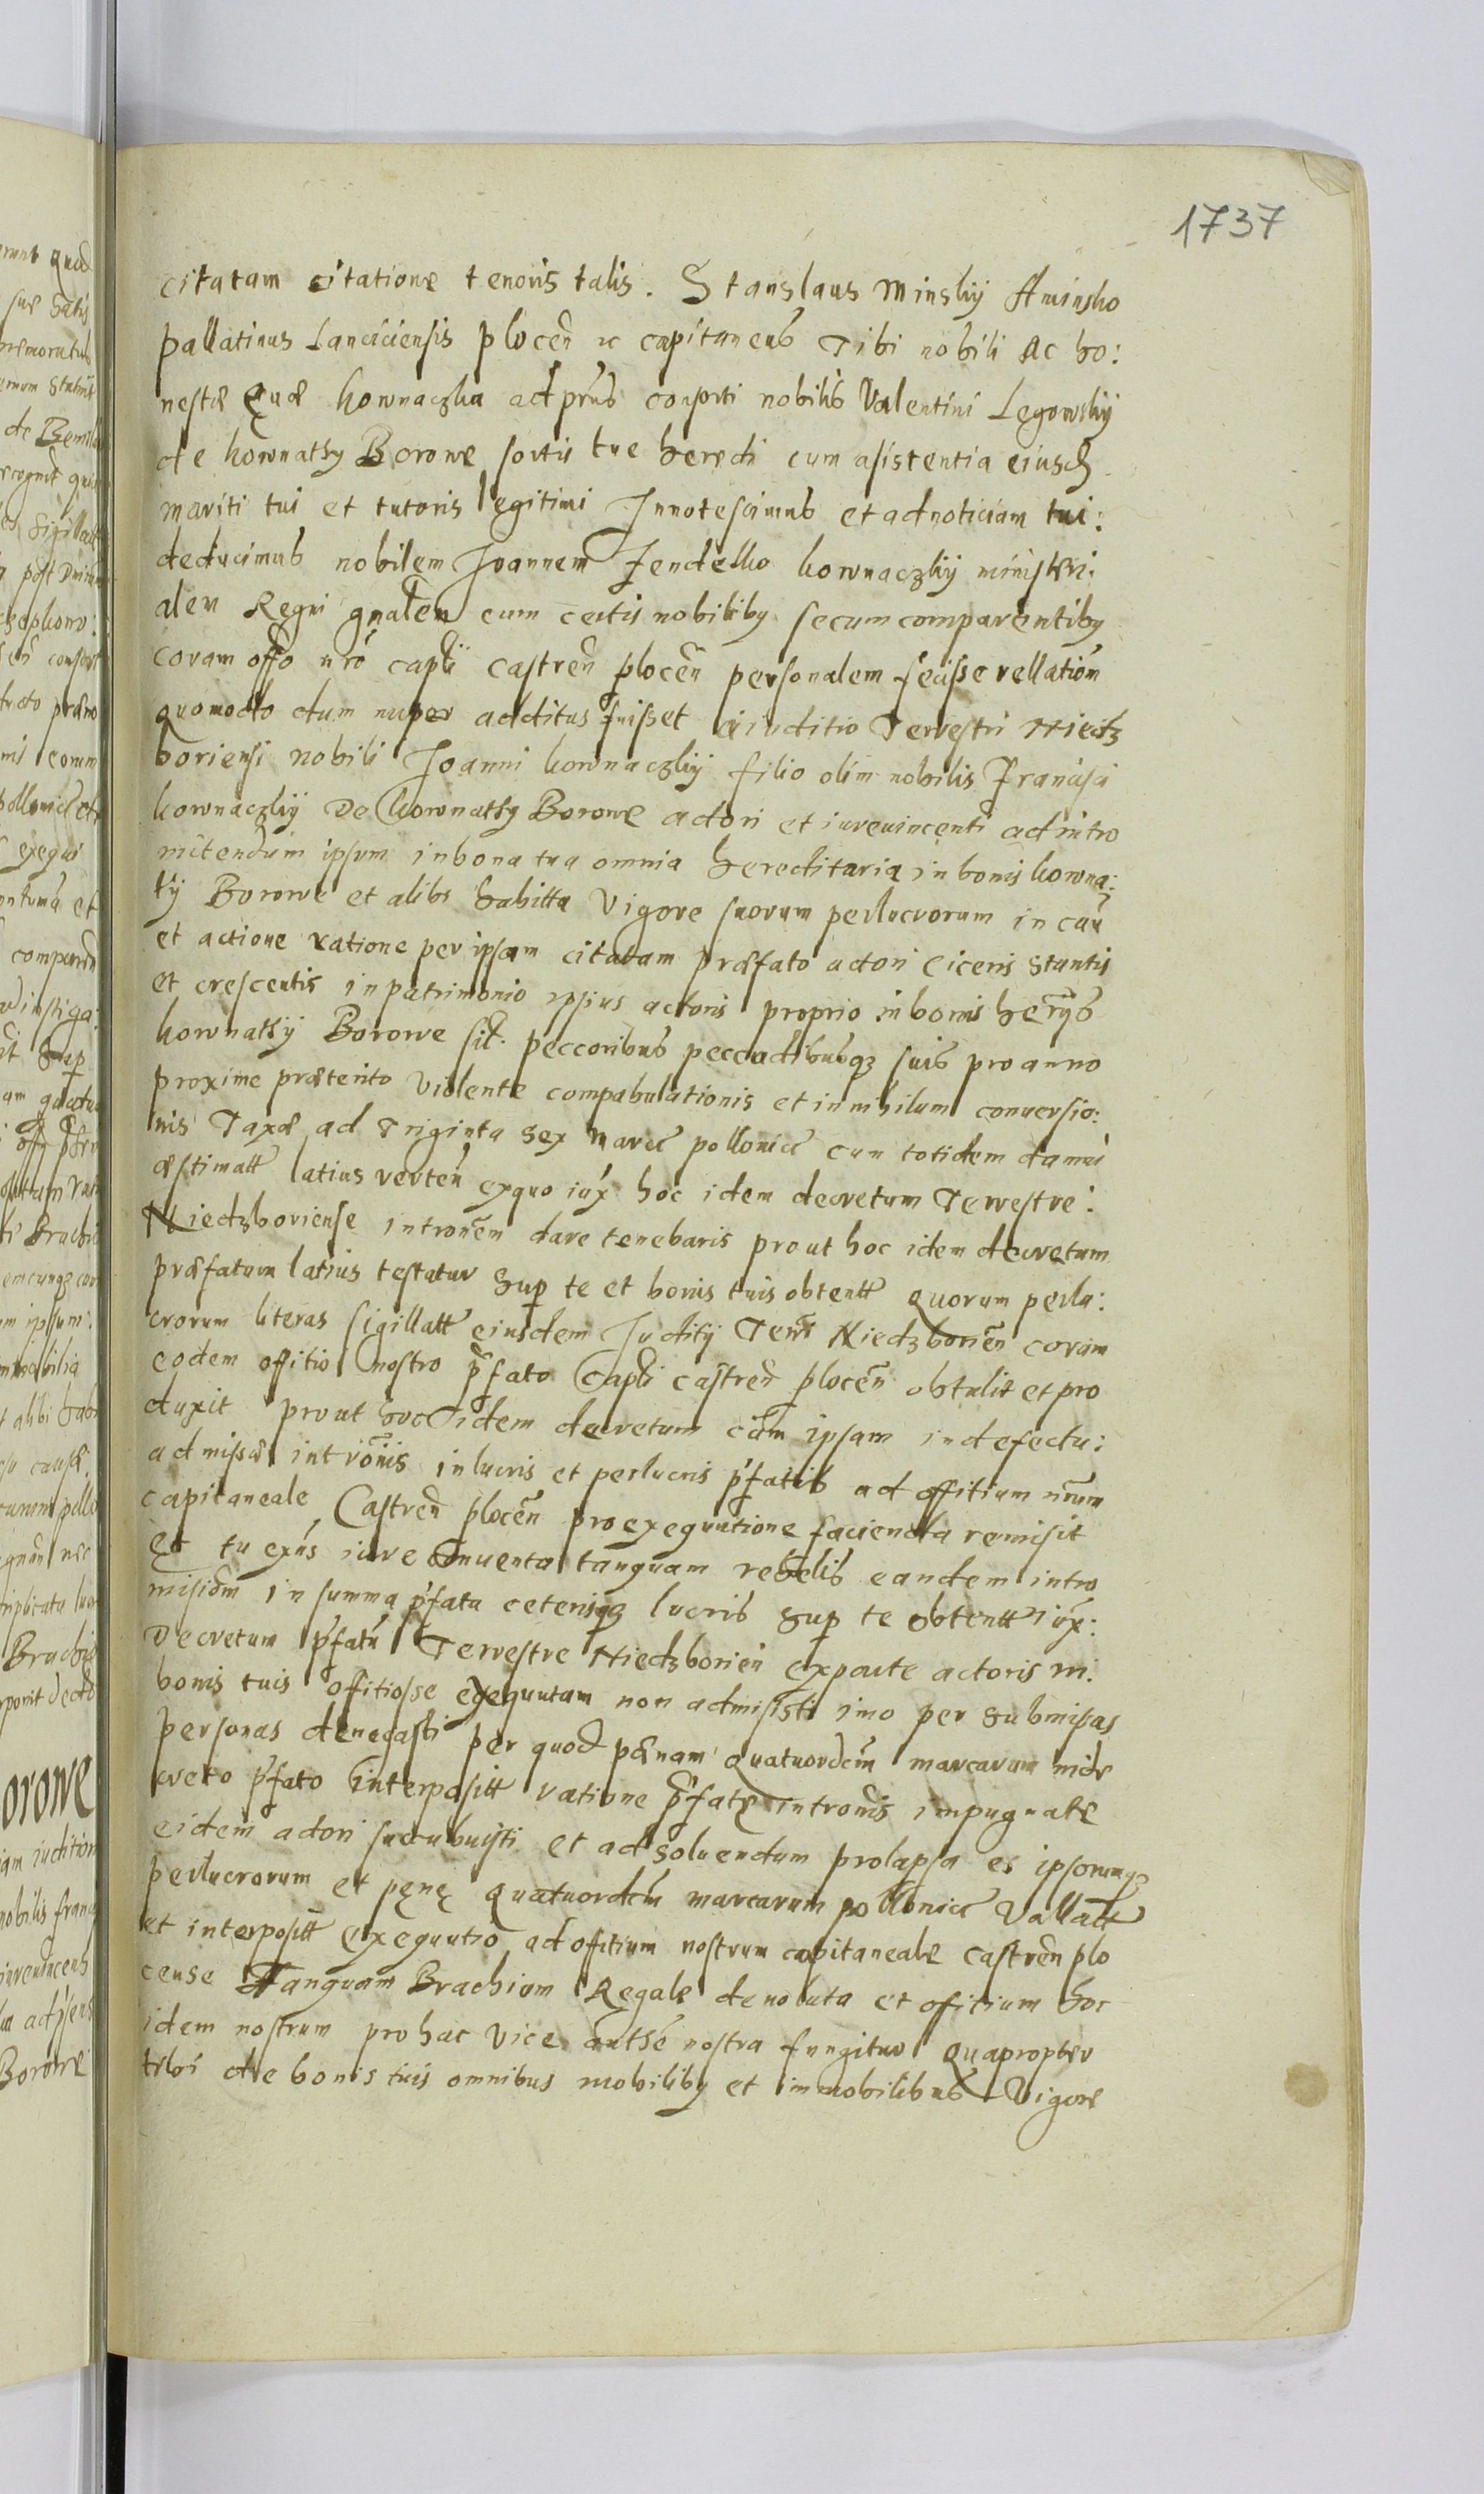 1737
citatam citatione tenoris talis. Stanslaus Minskÿ Aminsko
pallatinus Lanciciensis plocen̄ ꝛc capitaneus Tibi nobili Ac ho:
nestæ Euæ kownaczka ad prn̄s consorti nobilis Valentini Legowskÿ
de kownatky Borowe sortis tue heredi cum asistentia eiusd
mariti tui et tutoris legitimi Innotescimus et ad noticiam tui:
deducimus nobilem Joannem Jendelko kownaczkÿ ministeri:
alem Regni gnalem cum certis nobiliby secum comparentiby
coram offo nrō capli castren̄ plocen̄ personalem fecisse rellationem
quomodo dum nuper additus fuisset a iuditio Terrestri Niedz
boriensi nobili Joanni kownaczkÿ filio olim nobilis Francisci
kownaczkÿ De kownatky Borowe actori et iureuincenti ad intro
mitendum ipsum in bona tua omnia hereditaria in bonis kowna:
ty Borowe et alibi habitta Vigore suorum perlucrorum in cau
et actione ratione per ipsam citatam præfato actori ciceris stantis
et crescentis in patrimonio ipsius actoris proprio in bonis herÿs
kownatkÿ Borowe sit. peccoribus peccudibusqz suis pro anno
proxime præterito Violente compabulationis et in nihilum conuersio:
nis Taxæ ad Triginta sex marcs pollonics cum totidem damni
æstimatt latius verten̄ exquo iux hoc idem decretum Terrestre:
Niedzboriense intronem dare tenebaris prout hoc idem decretum
præfatum latius testatur sup te et bonis tuis obtentt quorum perlu:
crorum literas sigillatt eiusdem Juditÿ Terris Niedzborien̄ coram
eodem offitio nostro pfato Capli castren̄ plocen̄ obtulit et pro
duxit prout hoc idem decretum cum ipsam in defectu:
admissæ intronis in lucris et perlucris pfatis ad offitium nrum
capitaneale Castren̄ plocen̄ pro exeguutione facienda remisit
Et tu exn̄s iure conuenta tanquam rebelis eandem intro
misionem in summa pfata ceterisqz lucris sup te obtentt iux:
Decretum pfatū Terrestre Niedzborien̄ exparte actoris in:
bonis tuis offitiosse exequutam non admisisti imo per submissas
personas denegasti per quod pænam quatuordecim marcarum in de
creto pfato interpositt ratione pfatę intronis impugnate
eidem actori succubuisti et ad soluendum prolapsa es ipsorumqz
perlucrorum et pęnę quatuordecim marcarum pollonics Vallatt
et interpositt exeguutio ad offitium nostrum capitaneale castren̄ plo
cense Tanquam Brachium Regale deuoluta et offitium hoc
idem nostrum pro hac vice authe nostra fungitur quapropter
tibi de bonis tuis omnibus mobiliby et immobilibus Vigore